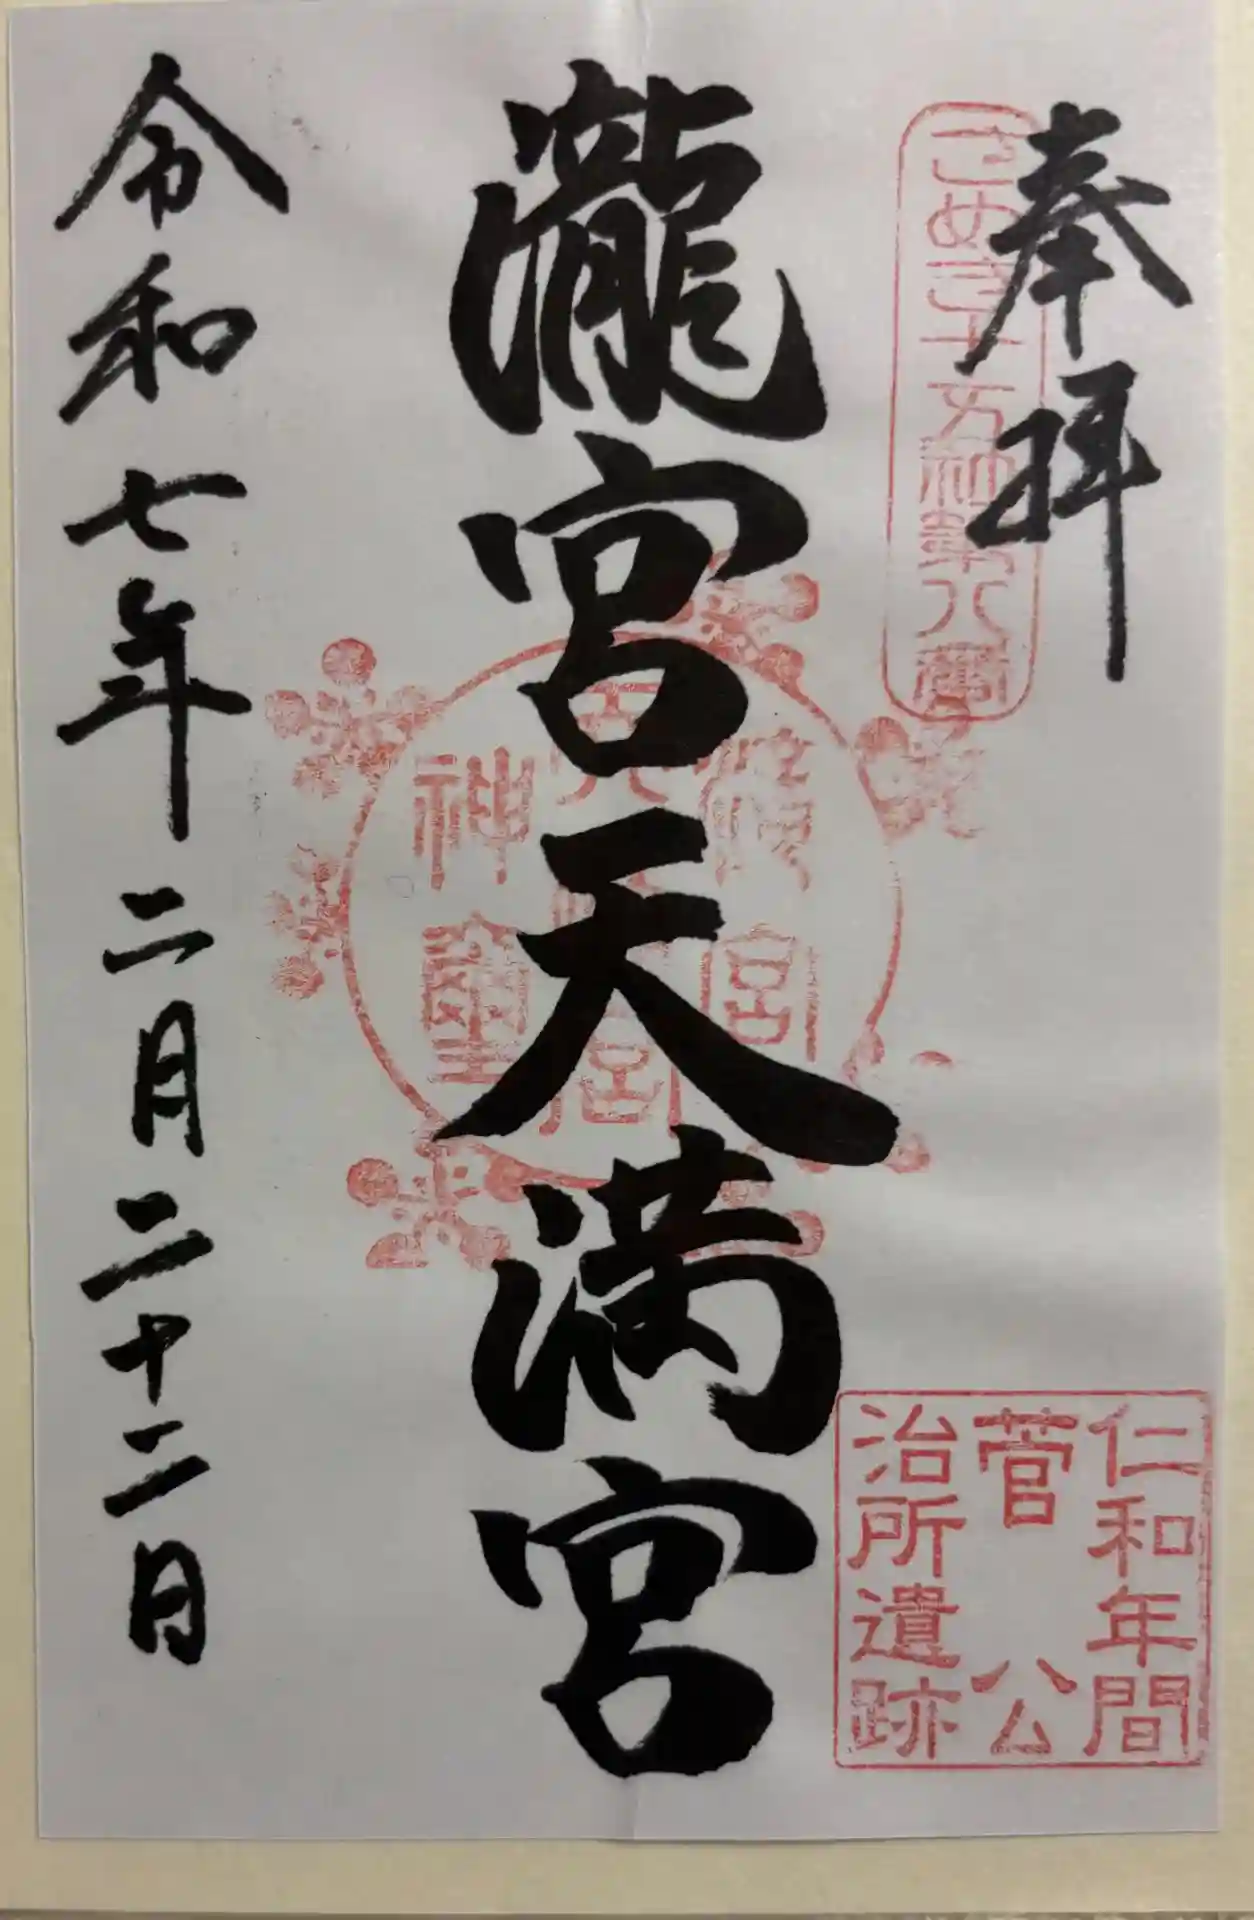 奉拝
さぬき十五社第八番
瀧宮天満宮
瀧宮
天満宮
神璽
仁和年間
菅公
治所遺跡
令和七年二月二十二日